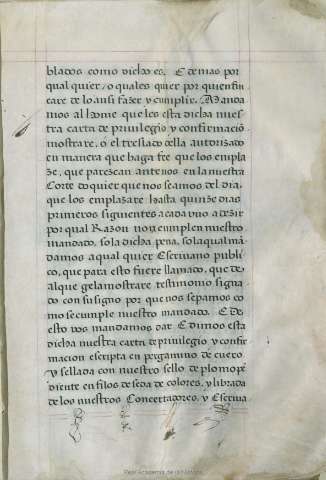 blados como dicho es. E demas por
qual quier, o quales quier por quien fin
care de lo ansi fazer y cumplir. Manda
mos al home que les esta dicha nues
tra carta de privilegio y confirmació
mostrare, o el treslado della autorizado
en manera que haga fee que los empla
ze, que parezcan ante nos en la nuestra
Corte do quier que nos seamos del dia,
que los emplazare hasta quinze dias
primeros siguientes a cada uno a dezir
por qual Razon no cumplen nuestro
mandado, so la dicha pena, so la qual má
damos a qual quier Escrivano publi
co, que para esto fuere llamado, que de
al que gela mostrare testimonio signa
do con su signo por que nos sepamos co
mo se cumple nuestro mandado. E de
esto vos mandamos dar E dimos esta
dicha nuestra carta de privilegio y confir
macion escripta en pergamino de cuero
y sellada con nuestro sello de plomo pé
diente en filos de seda de colores, y librada
de los nuestros Concertadores, y Escriva
Real Academia de la Historia